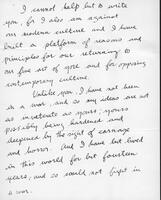 I cannot help but to write
you, for I also am against
our modern culture and I have
built a platform of reasons and
principles for our returning to
our fine art of yore and for opposing
contemporary culture.
Unlike you, I have not been
in a war, and so my ideas are not
as inveterate as yours; yours
possibly being hardened and
deepened by the sight of carnage
and horror. And I have but lived
in this world for but fourteen
years, and so could not fight in
a war.